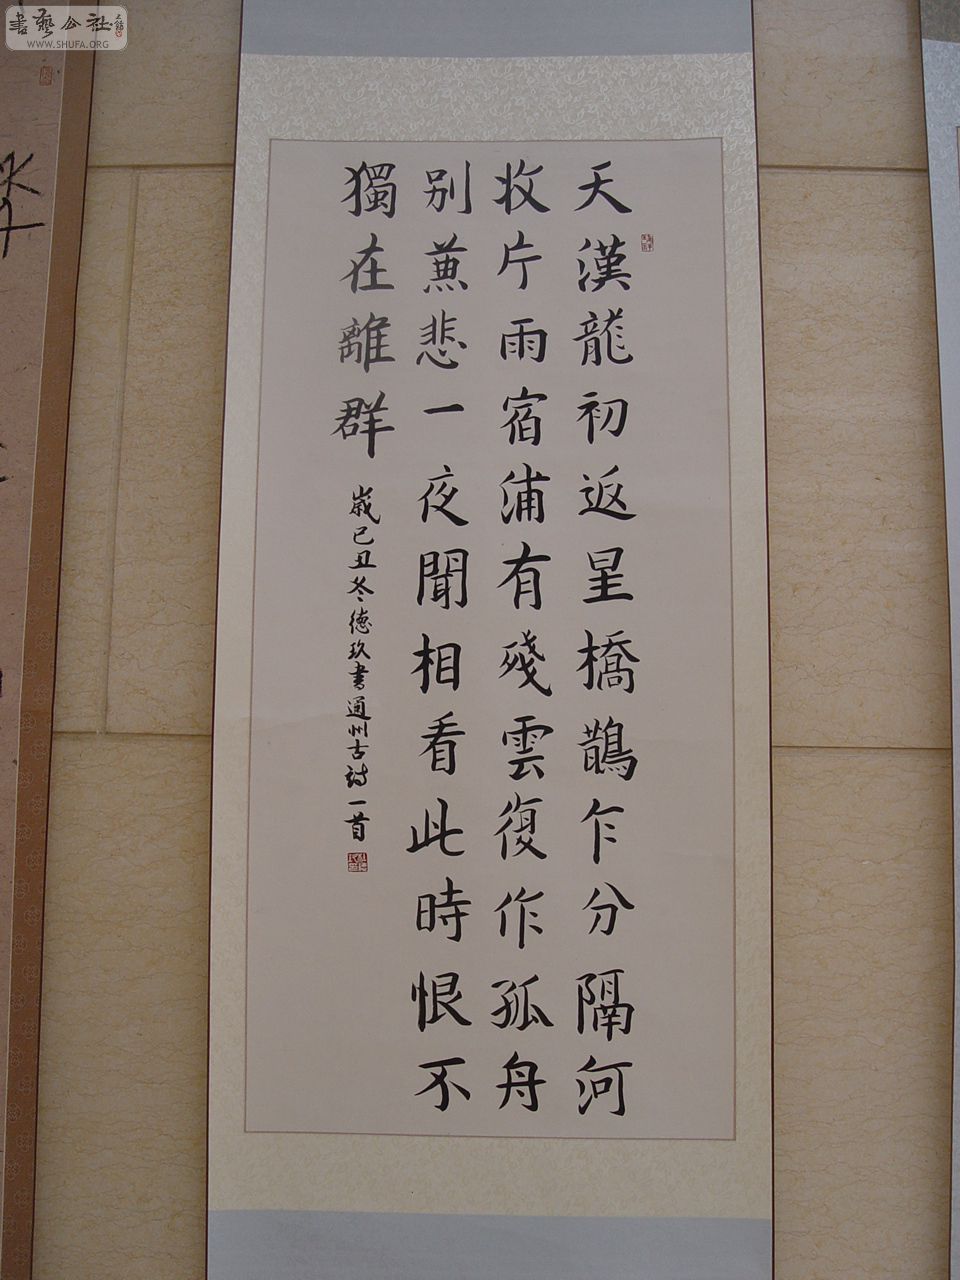 天漢龍初返星橋鵲乍分隔河
收片雨宿浦有殘雲復作孤舟
别兼悲一夜聞相看此時恨不
獨在離群
歲己丑冬德玖書通州古詩一首
書藝公社
WWW.SHUFA.ORG